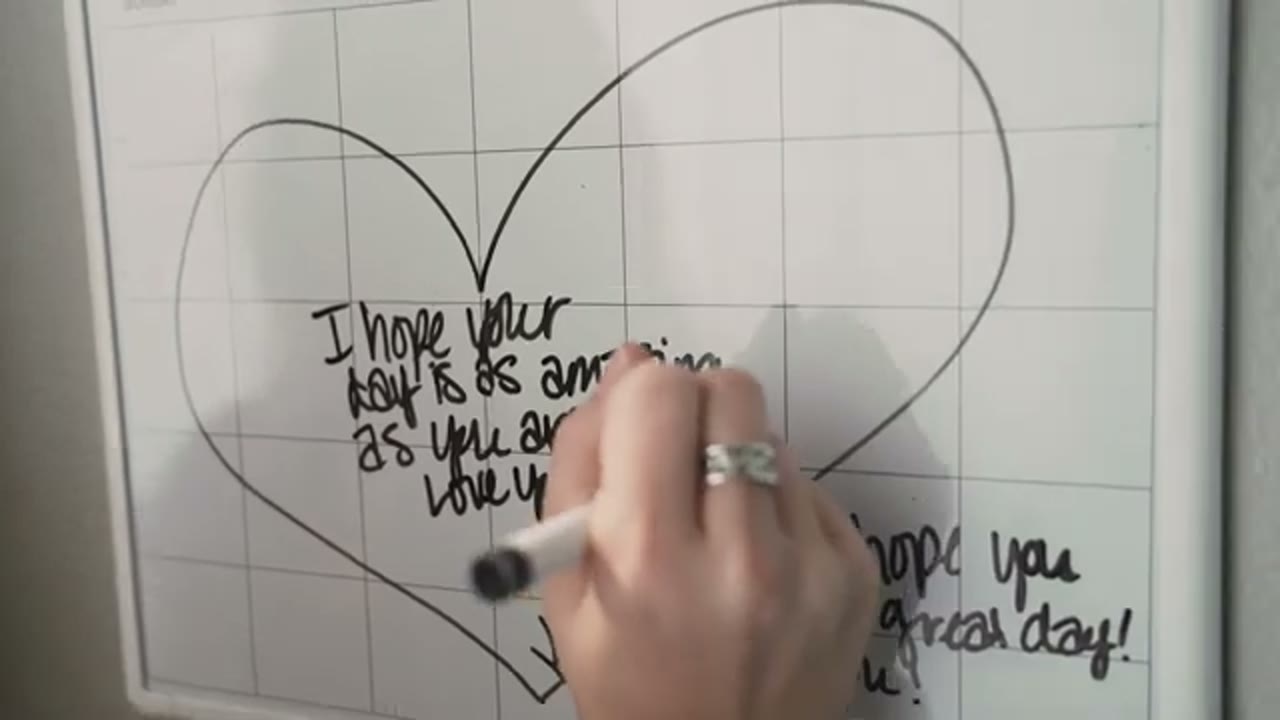 I hope your
day is as amazing
as you
Love
hope you
great day!